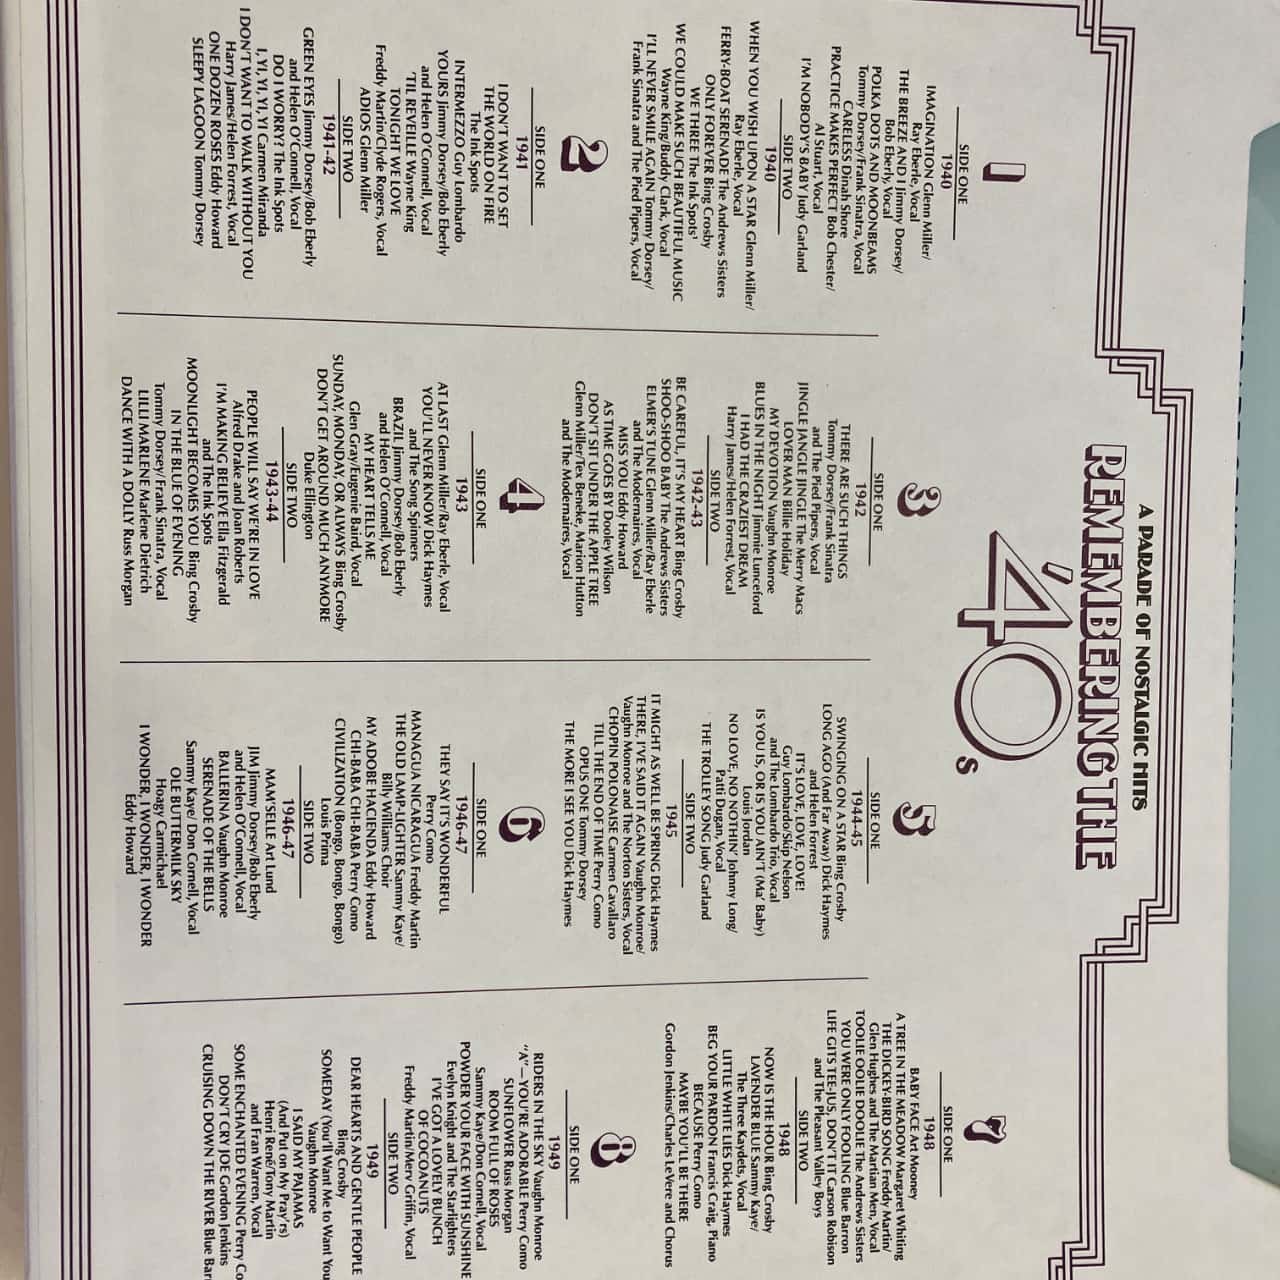 A PARADE OF NOSTALGIC HITS
REMEMBERING THE
'40s
1
SIDE ONE
1940
IMAGINATION Glenn Miller/
Ray Eberle, Vocal
THE BREEZE AND I Jimmy Dorsey/
Bob Eberly, Vocal
POLKA DOTS AND MOONBEAMS
Tommy Dorsey/Frank Sinatra, Vocal
CARELESS Dinah Shore
PRACTICE MAKES PERFECT Bob Chester/
Al Stuart, Vocal
I'M NOBODY'S BABY Judy Garland
SIDE TWO
1940
WHEN YOU WISH UPON A STAR Glenn Miller/
Ray Eberle, Vocal
FERRY-BOAT SERENADE The Andrews Sisters
ONLY FOREVER Bing Crosby
WE THREE The Ink Spots'
WE COULD MAKE SUCH BEAUTIFUL MUSIC
Wayne King/Buddy Clark, Vocal
I'LL NEVER SMILE AGAIN Tommy Dorsey/
Frank Sinatra and The Pied Pipers, Vocal
2
SIDE ONE
1941
I DON'T WANT TO SET
THE WORLD ON FIRE
The Ink Spots
INTERMEZZO Guy Lombardo
YOURS Jimmy Dorsey/Bob Eberly
and Helen O'Connell, Vocal
'TIL REVEILLE Wayne King
TONIGHT WE LOVE
Freddy Martin/Clyde Rogers, Vocal
ADIOS Glenn Miller
SIDE TWO
1941-42
GREEN EYES Jimmy Dorsey/Bob Eberly
and Helen O'Connell, Vocal
DO I WORRY? The Ink Spots
I, YI, YI, YI, YI Carmen Miranda
I DON'T WANT TO WALK WITHOUT YOU
Harry James/Helen Forrest, Vocal
ONE DOZEN ROSES Eddy Howard
SLEEPY LAGOON Tommy Dorsey
3
SIDE ONE
1942
THERE ARE SUCH THINGS
Tommy Dorsey/Frank Sinatra
and The Pied Pipers, Vocal
JINGLE JANGLE JINGLE The Merry Macs
LOVER MAN Billie Holiday
MY DEVOTION Vaughn Monroe
BLUES IN THE NIGHT Jimmie Lunceford
I HAD THE CRAZIEST DREAM
Harry James/Helen Forrest, Vocal
SIDE TWO
1942-43
BE CAREFUL, IT'S MY HEART Bing Crosby
SHOO-SHOO BABY The Andrews Sisters
ELMER'S TUNE Glenn Miller/Ray Eberle
and The Modernaires, Vocal
MISS YOU Eddy Howard
AS TIME GOES BY Dooley Wilson
DON'T SIT UNDER THE APPLE TREE
Glenn Miller/Tex Beneke, Marion Hutton
and The Modernaires, Vocal
4
SIDE ONE
1943
AT LAST Glenn Miller/Ray Eberle, Vocal
YOU'LL NEVER KNOW Dick Haymes
and The Song Spinners
BRAZIL Jimmy Dorsey/Bob Eberly
and Helen O'Connell, Vocal
MY HEART TELLS ME
Glen Gray/Eugenie Baird, Vocal
SUNDAY, MONDAY, OR ALWAYS Bing Crosby
DON'T GET AROUND MUCH ANYMORE
Duke Ellington
SIDE TWO
1943-44
PEOPLE WILL SAY WE'RE IN LOVE
Alfred Drake and Joan Roberts
I'M MAKING BELIEVE Ella Fitzgerald
and The Ink Spots
MOONLIGHT BECOMES YOU Bing Crosby
IN THE BLUE OF EVENING
Tommy Dorsey/Frank Sinatra, Vocal
LILLI MARLENE Marlene Dietrich
DANCE WITH A DOLLY Russ Morgan
5
SIDE ONE
1944-45
SWINGING ON A STAR Bing Crosby
LONG AGO (And Far Away) Dick Haymes
and Helen Forrest
IT'S LOVE, LOVE, LOVE!
Guy Lombardo/Skip Nelson
and The Lombardo Trio, Vocal
IS YOU IS, OR IS YOU AIN'T (Ma' Baby)
Louis Jordan
NO LOVE, NO NOTHIN' Johnny Long/
Patti Dugan, Vocal
THE TROLLEY SONG Judy Garland
SIDE TWO
1945
IT MIGHT AS WELL BE SPRING Dick Haymes
THERE, I'VE SAID IT AGAIN Vaughn Monroe/
Vaughn Monroe and The Norton Sisters, Vocal
CHOPIN POLONAISE Carmen Cavallaro
TILL THE END OF TIME Perry Como
OPUS ONE Tommy Dorsey
THE MORE I SEE YOU Dick Haymes
6
SIDE ONE
1946-47
THEY SAY IT'S WONDERFUL
Perry Como
MANAGUA NICARAGUA Freddy Martin
THE OLD LAMP-LIGHTER Sammy Kaye/
Billy Williams Choir
MY ADOBE HACIENDA Eddy Howard
CHI-BABA CHI-BABA Perry Como
CIVILIZATION (Bongo, Bongo, Bongo)
Louis Prima
SIDE TWO
1946-47
MAM'SELLE Art Lund
JIM Jimmy Dorsey/Bob Eberly
and Helen O'Connell, Vocal
BALLERINA Vaughn Monroe
SERENADE OF THE BELLS
Sammy Kaye/ Don Cornell, Vocal
OLE BUTTERMILK SKY
Hoagy Carmichael
I WONDER, I WONDER, I WONDER
Eddy Howard
7
SIDE ONE
1948
BABY FACE Art Mooney
A TREE IN THE MEADOW Margaret Whiting
THE DICKEY-BIRD SONG Freddy Martin/
Glen Hughes and The Martian Men, Vocal
TOOLIE OOLIE DOOLIE The Andrews Sisters
YOU WERE ONLY FOOLING Blue Barron
LIFE GITS TEE-JUS, DON'T IT Carson Robison
and The Pleasant Valley Boys
SIDE TWO
1948
NOW IS THE HOUR Bing Crosby
LAVENDER BLUE Sammy Kaye/
The Three Kaydets, Vocal
LITTLE WHITE LIES Dick Haymes
BEG YOUR PARDON Francis Craig, Piano
BECAUSE Perry Como
MAYBE YOU'LL BE THERE
Gordon Jenkins/Charles Le Vere and Chorus
8
SIDE ONE
1949
RIDERS IN THE SKY Vaughn Monroe
"A"—YOU'RE ADORABLE Perry Como
SUNFLOWER Russ Morgan
ROOM FULL OF ROSES
Sammy Kaye/Don Cornell, Vocal
POWDER YOUR FACE WITH SUNSHINE
Evelyn Knight and The Starlighters
I'VE GOT A LOVELY BUNCH
OF COCOANUTS
Freddy Martin/Merv Griffin, Vocal
SIDE TWO
1949
DEAR HEARTS AND GENTLE PEOPLE
Bing Crosby
SOMEDAY (You'll Want Me to Want You
Vaughn Monroe
I SAID MY PAJAMAS
(And Put on My Pray'rs)
Henri René/Tony Martin
and Fran Warren, Vocal
SOME ENCHANTED EVENING Perry Co
DON'T CRY JOE Gordon Jenkins
CRUISING DOWN THE RIVER Blue Bar